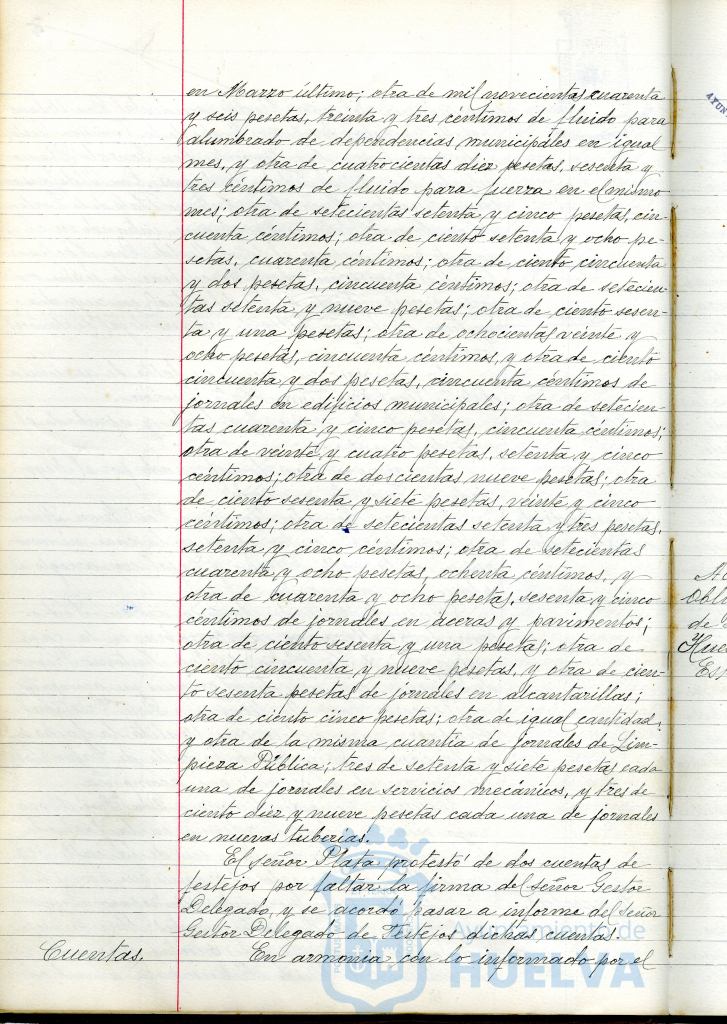 en Marzo último; otra de mil novecientas cuarenta
y seis pesetas, treinta y tres céntimos de fluido para
alumbrado de dependencias municipales en igual
mes, y otra de cuatrocientas diez pesetas, sesenta y
tres céntimos de fluido para fuerza en el mismo
mes; otra de setecientas setenta y cinco pesetas, cin-
cuenta céntimos; otra de ciento setenta y ocho pe-
setas, cuarenta céntimos; otra de ciento cincuenta
y dos pesetas, cincuenta céntimos; otra de setecien-
tas setenta y nueve pesetas; otra de ciento sesen-
ta y una pesetas; otra de ochocientas veinte y
ocho pesetas, cincuenta céntimos, y otra de ciento
cincuenta y dos pesetas, cincuenta céntimos de
jornales en edificios municipales; otra de setecien-
tas cuarenta y cinco pesetas, cincuenta céntimos;
otra de veinte y cuatro pesetas, setenta y cinco
céntimos; otra de doscientas nueve pesetas; otra
de ciento sesenta y siete pesetas, veinte y cinco
céntimos; otra de setecientas setenta y tres pesetas,
setenta y cinco centimos; otra de setecientas
cuarenta y ocho pesetas, ochenta céntimos, y
otra de cuarenta y ocho pesetas, sesenta y cinco
céntimos de jornales en aceras y pavimentos;
otra de ciento sesenta y una pesetas; otra de
ciento cincuenta y nueve pesetas, y otra de cien-
to sesenta pesetas de jornales en alcantarillas;
otra de ciento cinco pesetas; otra de igual cantidad,
y otra de la misma cuantía de jornales de Lim-
pieza Pública; tres de setenta y siete pesetas cada
una de jornales en servicios mecánicos, y tres de
ciento diez y nueve pesetas cada una de jornales
en nuevas tuberías.
El señor Plata protestó de dos cuentas de
festejos por faltar la firma del señor Gestor
Delegado, y se acordó pasar a informe del señor
Gestor Delegado de Festejos dichas cuentas.
Cuentas. En armonía con lo informado por el
Ayuntamiento de
HUELVA